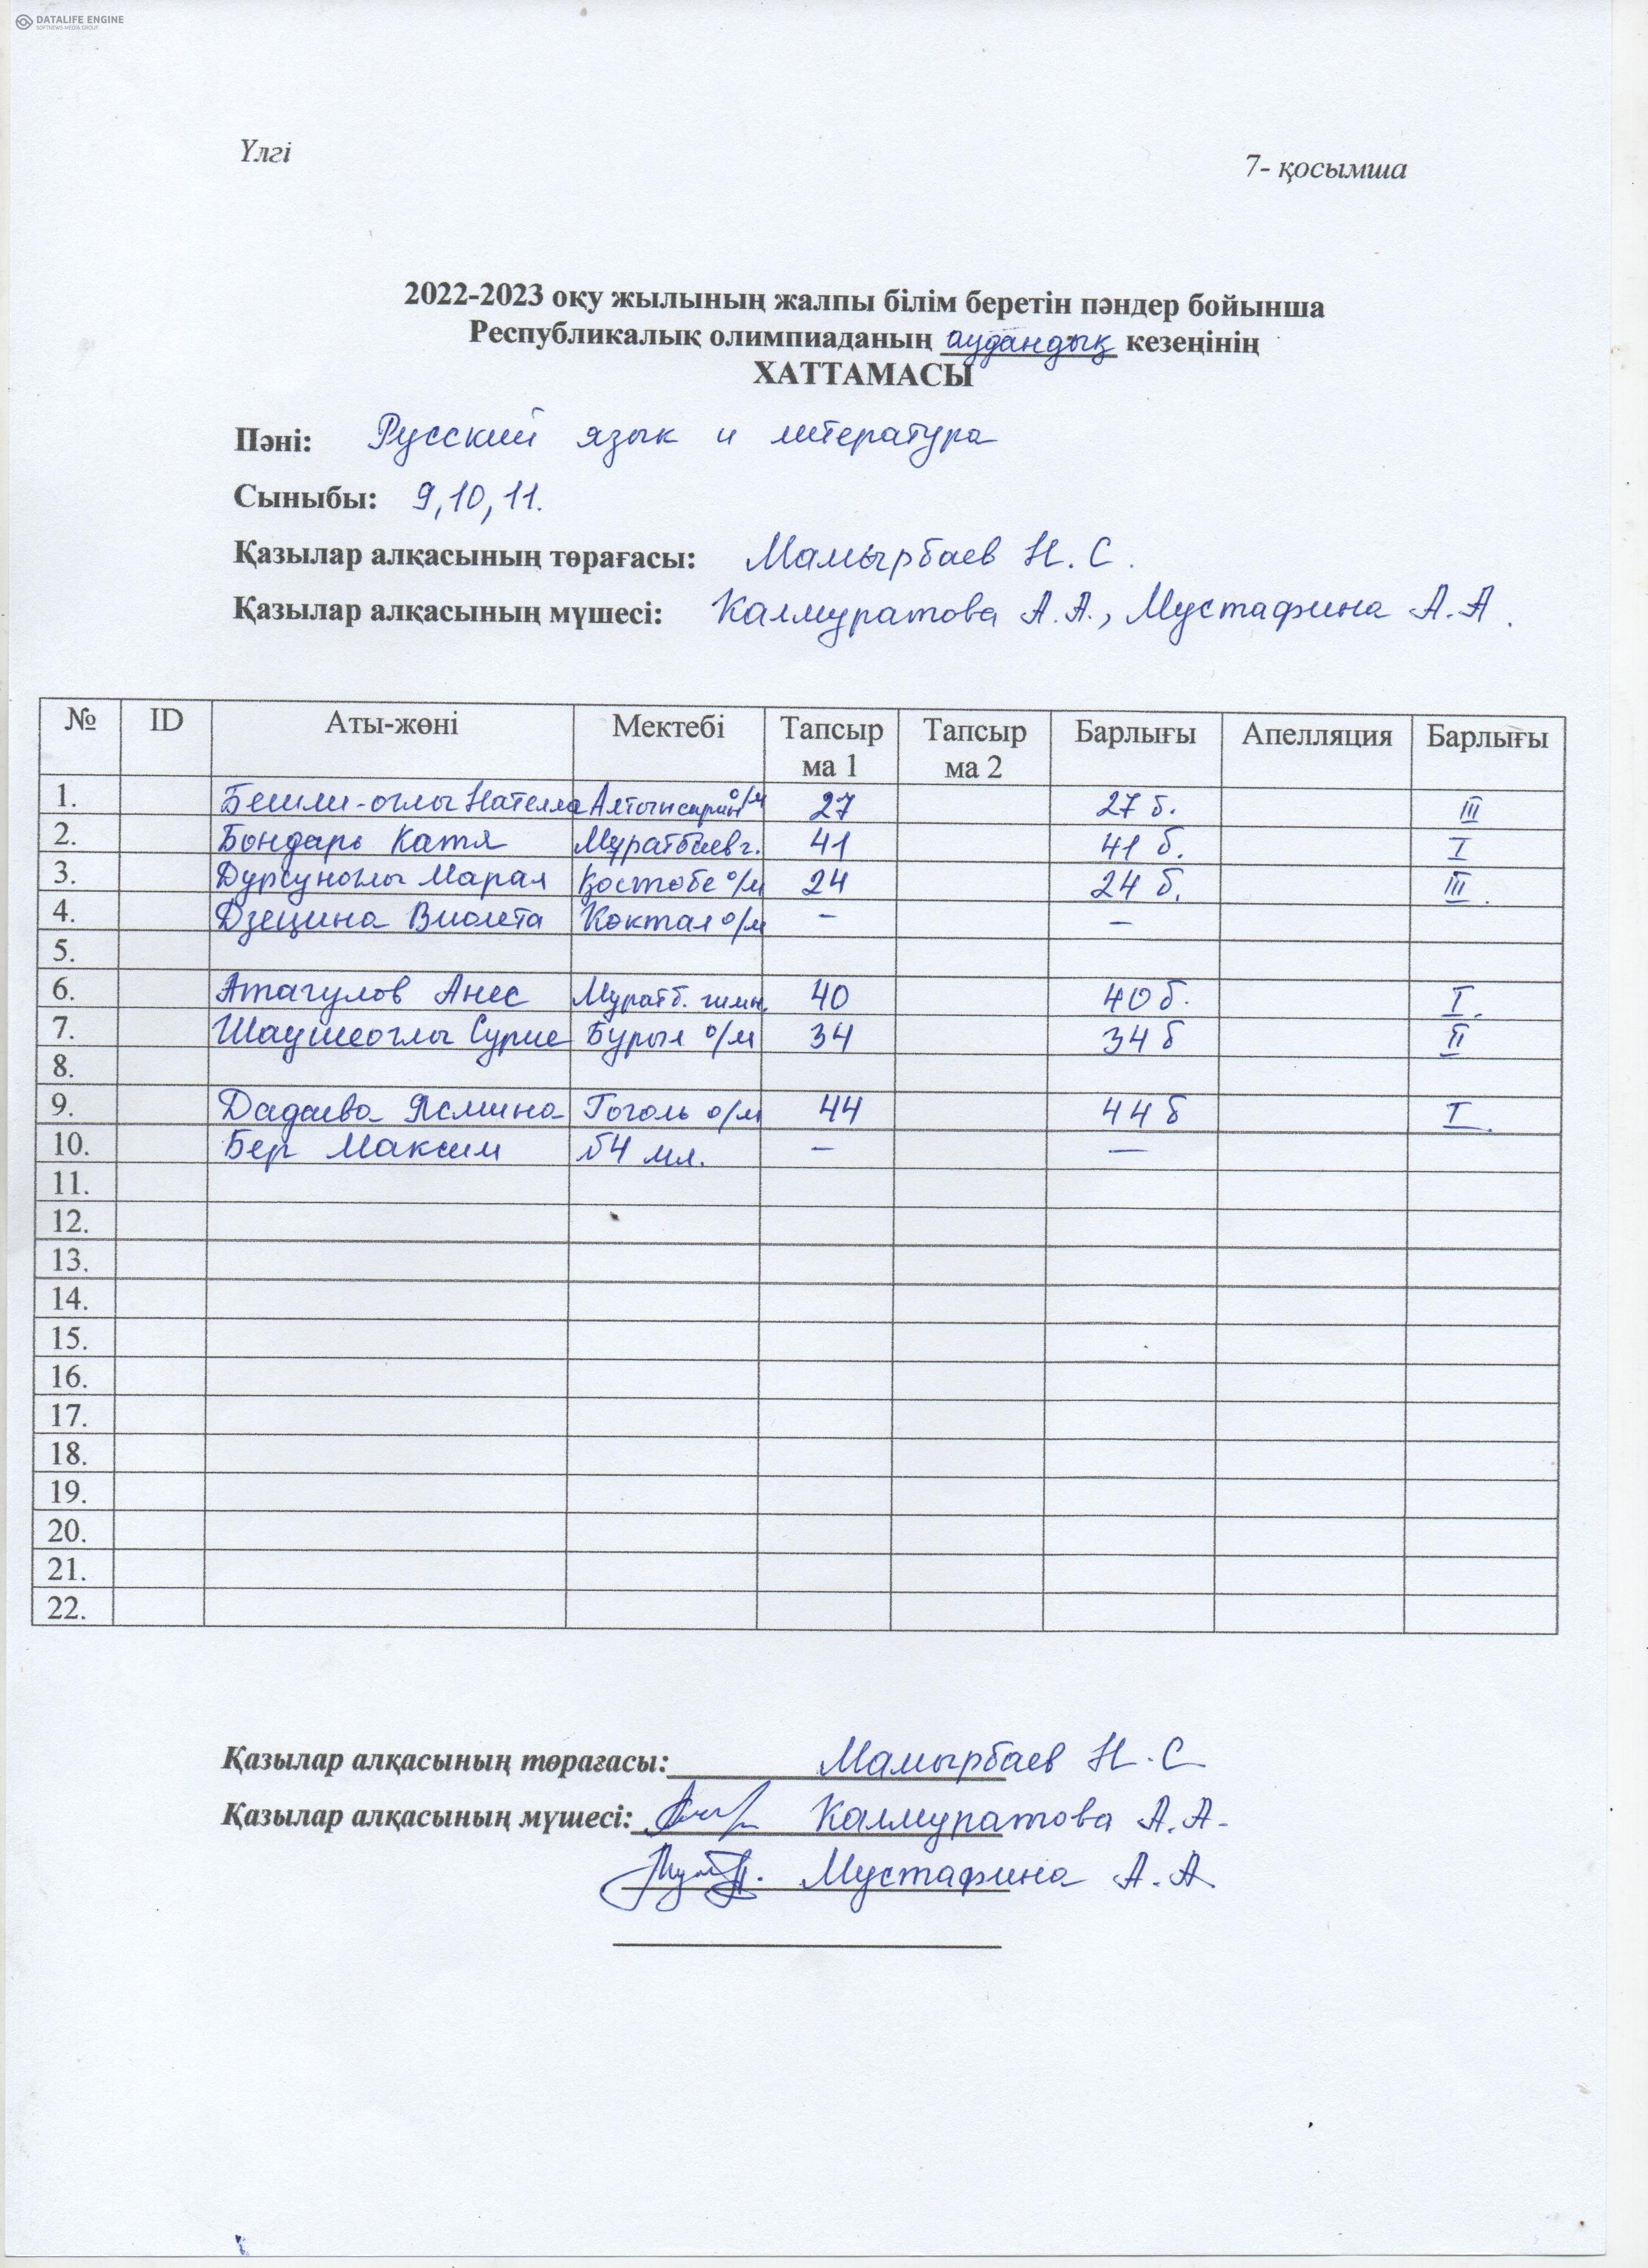 DATALIFE ENGINE
SOFTNEWS MEDIA GROUP
Үлгі
7- қосымша
2022-2023 оқу жылының жалпы білім беретін пәндер бойынша
Республикалық олимпиаданың аудандық кезеңінің
ХАТТАМАСЫ
Пәні: Русский язык и литература
Сыныбы: 9,10,11.
Қазылар алқасының төрағасы: Мамырбаев Н.С.
Қазылар алқасының мүшесі: Калмуратова А.А., Мустафина А.А.
№ ID Аты-жөні Мектебі Тапсыр ма 1 Тапсыр ма 2 Барлығы Апелляция Барлығы
1. Бешли-оглы Нателла Алтынсарин о/м 27 27 б. III
2. Бондарь Катя Муратбаев г. 41 41 б. I
3. Дурсуноглы Марал Костобе о/м 24 24 б. III.
4. Дзецина Виолета Коктал о/м – –
5.
6. Атагулов Анес Муратб. гимн. 40 40 б. I.
7. Шаушеоглы Сурие Бурыл о/м 34 34 б II
8.
9. Дадаева Ясмина Гоголь о/м 44 44 б I.
10. Бер Максим б4 мл. – –
11.
12.
13.
14.
15.
16.
17.
18.
19.
20.
21.
22.
Қазылар алқасының төрағасы: Мамырбаев Н.С
Қазылар алқасының мүшесі: Калмуратова А.А.
Мустафина А.А.